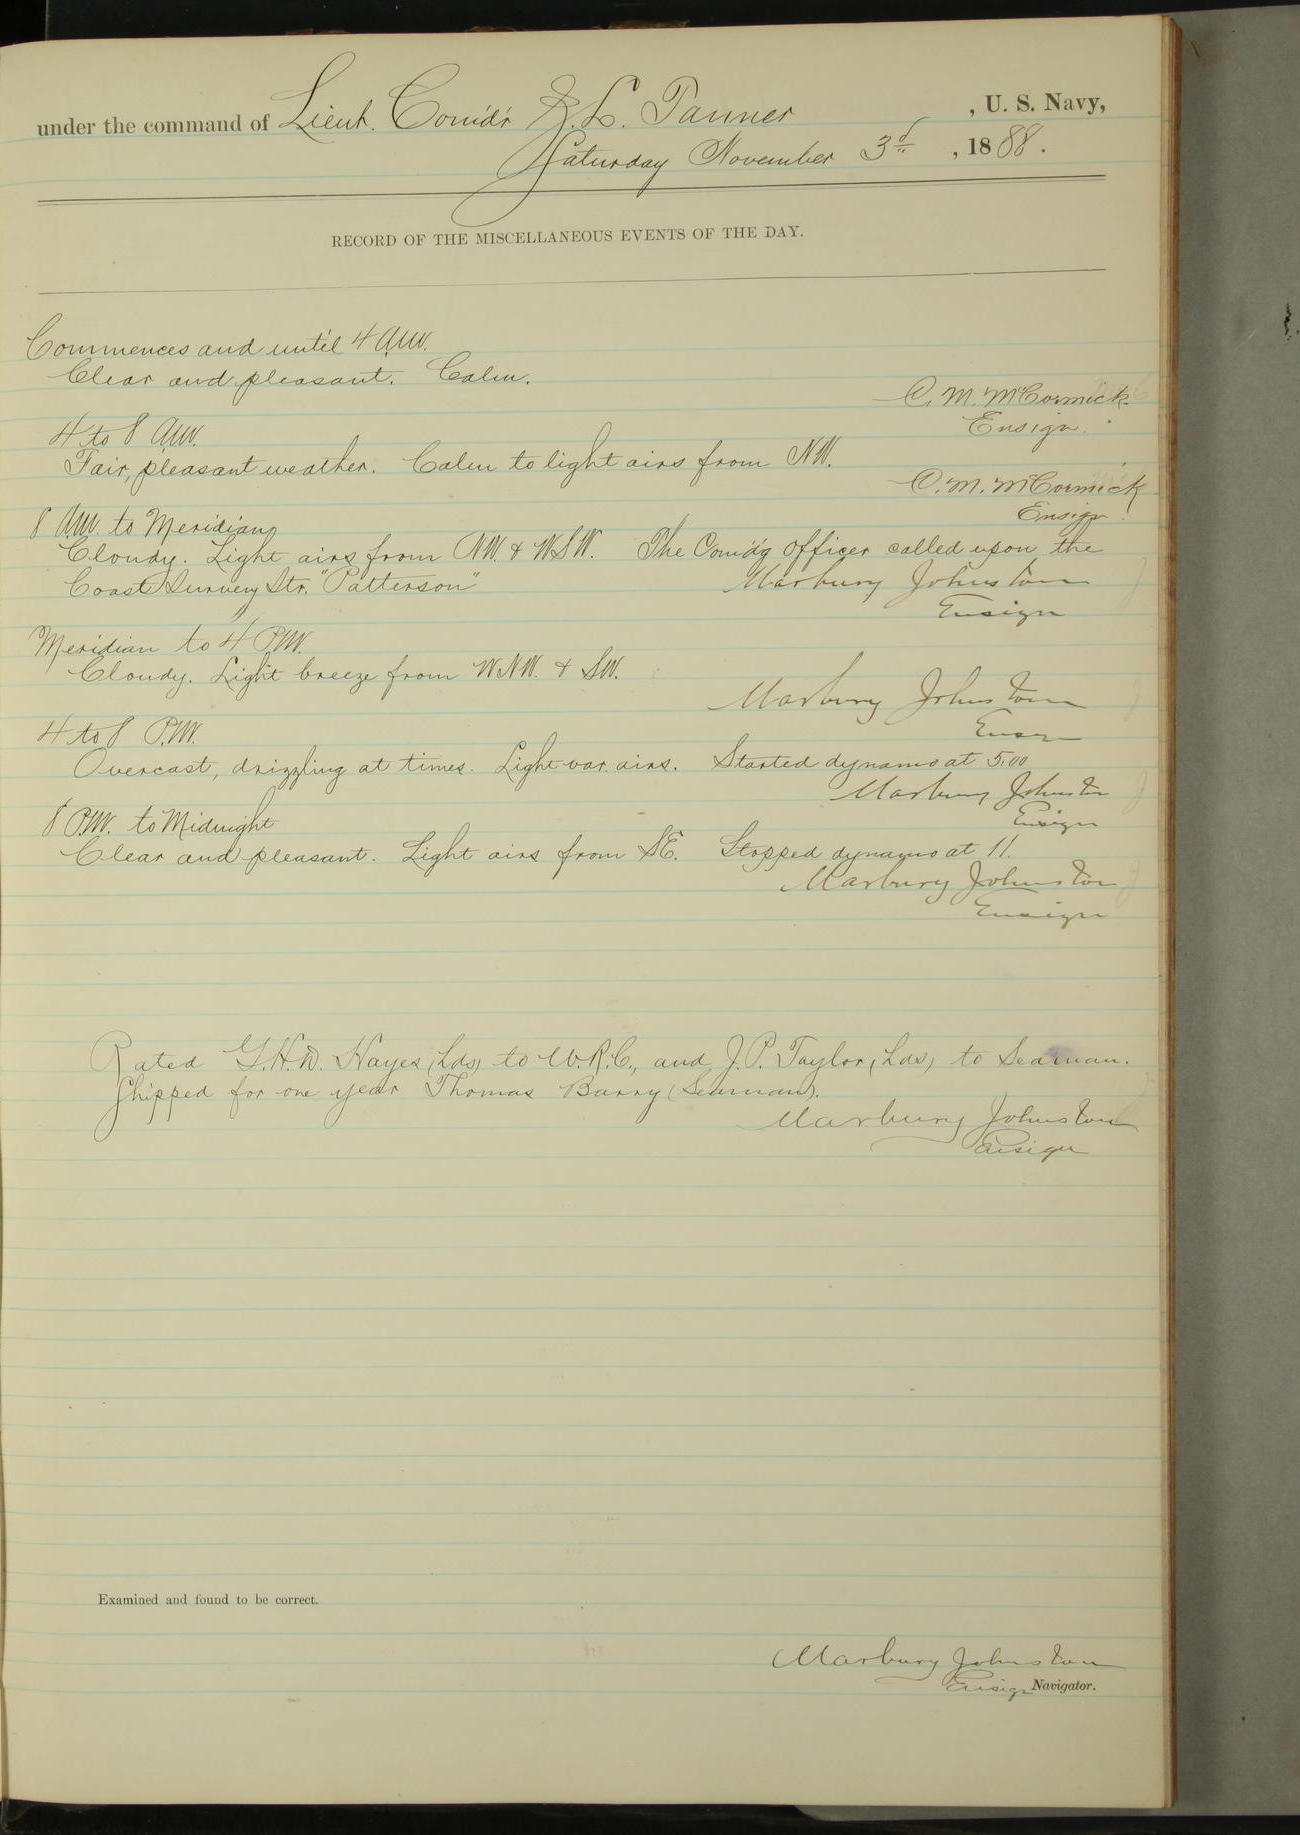 under the command of Lieut. Comd'r Z. L. Tanner, U. S. Navy,
Saturday November 3d, 1888.
RECORD OF THE MISCELLANEOUS EVENTS OF THE DAY.
Commences and until 4 A.M.
Clear and pleasant. Calm.
C. M. McCormick.
Ensign.
4 to 8 A.M.
Fair, pleasant weather. Calm to light airs from NW.
C. M. McCormick
Ensign.
8 A.M. to Meridian
Cloudy. Light airs from NW. & WSW. The Comd'g Officer called upon the
Coast Survey Str. "Patterson"
Marbury Johnston
Ensign
Meridian to 4 P.M.
Cloudy. Light breeze from WNW. & SW.
Marbury Johnston
Ensign
4 to 8 P.M.
Overcast, drizzling at times. Light var. airs. Started dynamo at 5.00
Marbury Johnston
Ensign
8 P.M. to Midnight
Clear and pleasant. Light airs from SE. Stopped dynamo at 11.
Marbury Johnston
Ensign
Rated G. H. Hayes, (Lds) to W.R.C., and J. P. Taylor, (Lds) to Seaman.
Shipped for one year Thomas Barry (Seaman).
Marbury Johnston
Ensign
Examined and found to be correct.
Marbury Johnston
Ensign Navigator.